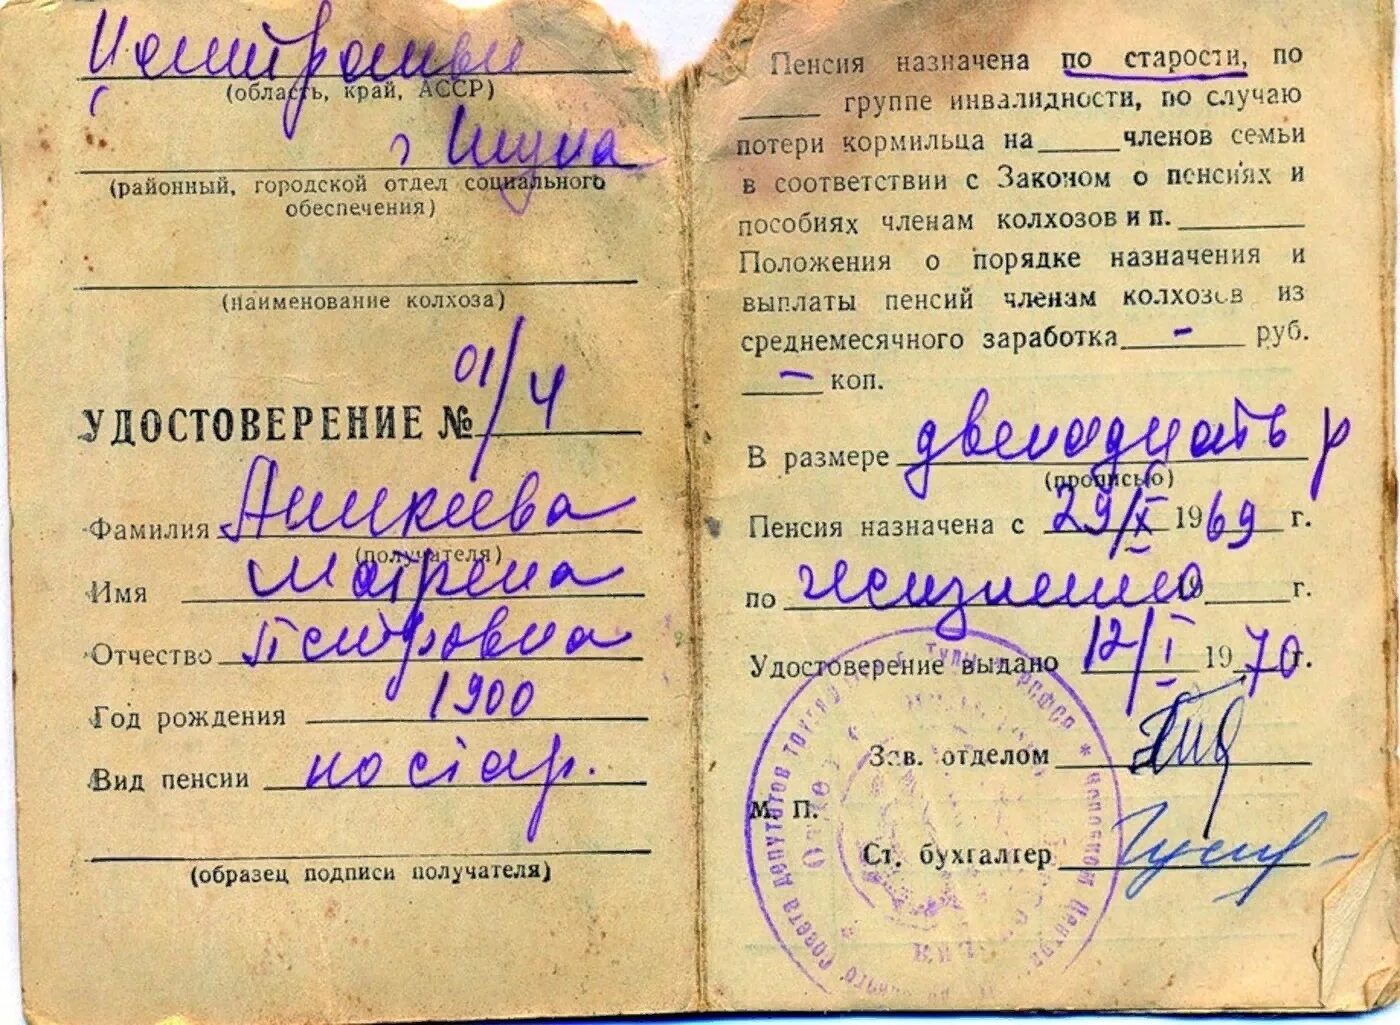 Центральн
(область, край, АССР)
г Тула
(районный, городской отдел социального
обеспечения)
(наименование колхоза)
УДОСТОВЕРЕНИЕ № 01/4
Фамилия Аникеева
(получателя)
Имя Матрена
Отчество Петровна
Год рождения 1900
Вид пенсии по стар.
(образец подписи получателя)
Пенсия назначена по старости, по
____ группе инвалидности, по случаю
потери кормильца на ____ членов семьи
в соответствии с Законом о пенсиях и
пособиях членам колхозов и п. ____
Положения о порядке назначения и
выплаты пенсий членам колхозов из
среднемесячного заработка - руб.
- коп.
В размере двенадцать р
(прописью)
Пенсия назначена с 29/X 1969 г.
по жизненно 19 г.
Удостоверение выдано 12/I 1970 г.
Зав. отделом
М. П.
Ст. бухгалтер